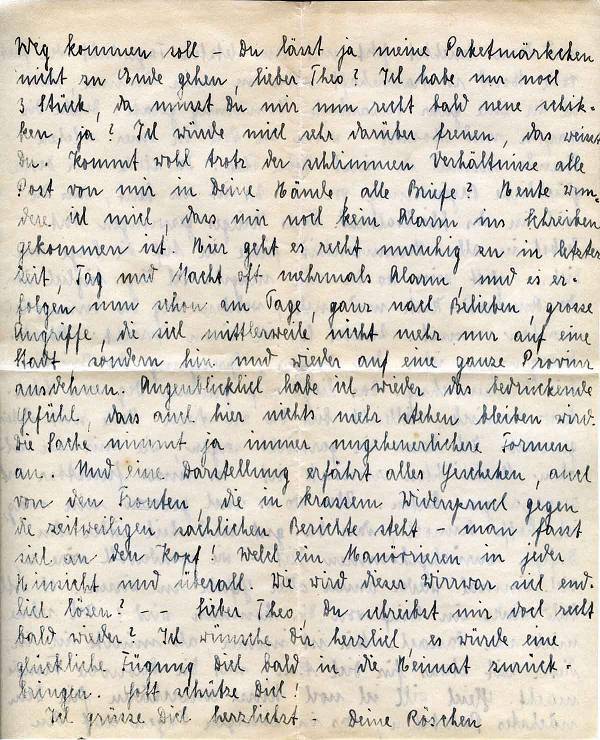 Weg kommen soll – Du lässt ja meine Paketmärkchen
nicht zu Ende gehen, lieber Theo? Ich habe nur noch
3 Stück, da musst Du mir nun recht bald neue schik-
ken, ja? Ich würde mich sehr darüber freuen, das weisst
Du. Kommt wohl trotz der schlimmen Verhältnisse alle
Post von mir in Deine Hände, alle Briefe? Heute wun-
dere ich mich, dass mir noch kein Alarm ins Schreiben
gekommen ist. Hier geht es recht unruhig zu in letzter
Zeit Tag und Nacht oft mehrmals Alarm, und es er-
folgen nun schon am Tage, ganz nach Belieben, grosse
Angriffe, die sich mittlerweile nicht mehr nur auf eine
Stadt, sondern hin und wieder auf eine ganze Provinz
ausdehnen. Augenblicklich habe ich wieder das bedrückende
Gefühl, dass auch hier nichts mehr stehen bleiben wird.
Die Sache nimmt ja immer ungeheuerlichere Formen
an. Und eine Darstellung erfährt alles Geschehen, auch
von den Fronten, die in krassem Widerspruch gegen
die zeitweiligen sachlichen Berichte steht – man fasst
sich an den Kopf! Welch ein Manövrieren in jeder
Hinsicht und überall. Wie wird dieser Wirrwar sich end-
lich lösen? – – Lieber Theo, Du schreibst mir doch recht
bald wieder? Ich wünsche Dir herzlich, es würde eine
glückliche Fügung Dich bald in die Heimat zurück-
bringen. Gott schütze Dich!
Ich grüsse Dich herzlichst – Deine Röschen